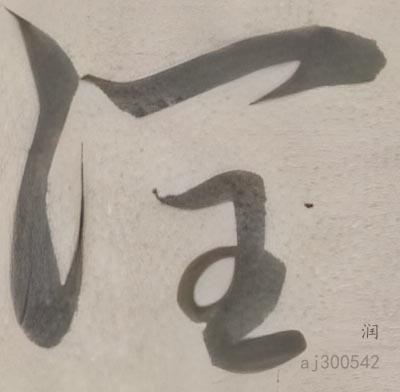 润
润
aj300542